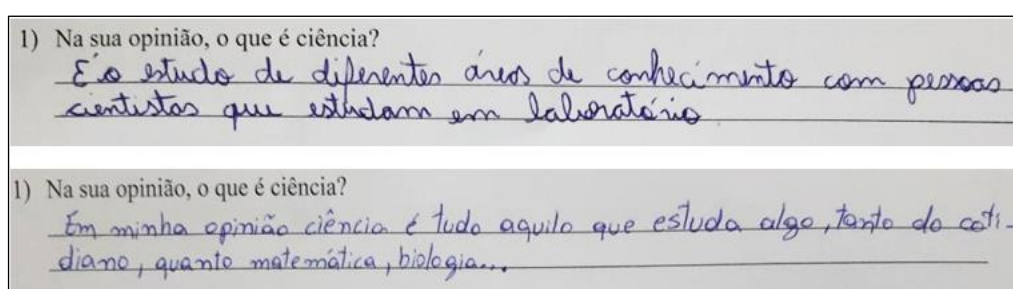 1) Na sua opinião, o que é ciência?
É o estudo de diferentes áreas de conhecimento com pessoas
cientistas que estudam em laboratório
1) Na sua opinião, o que é ciência?
Em minha opinião ciência é tudo aquilo que estuda algo, tanto do coti-
diano, quanto matemática, biologia...